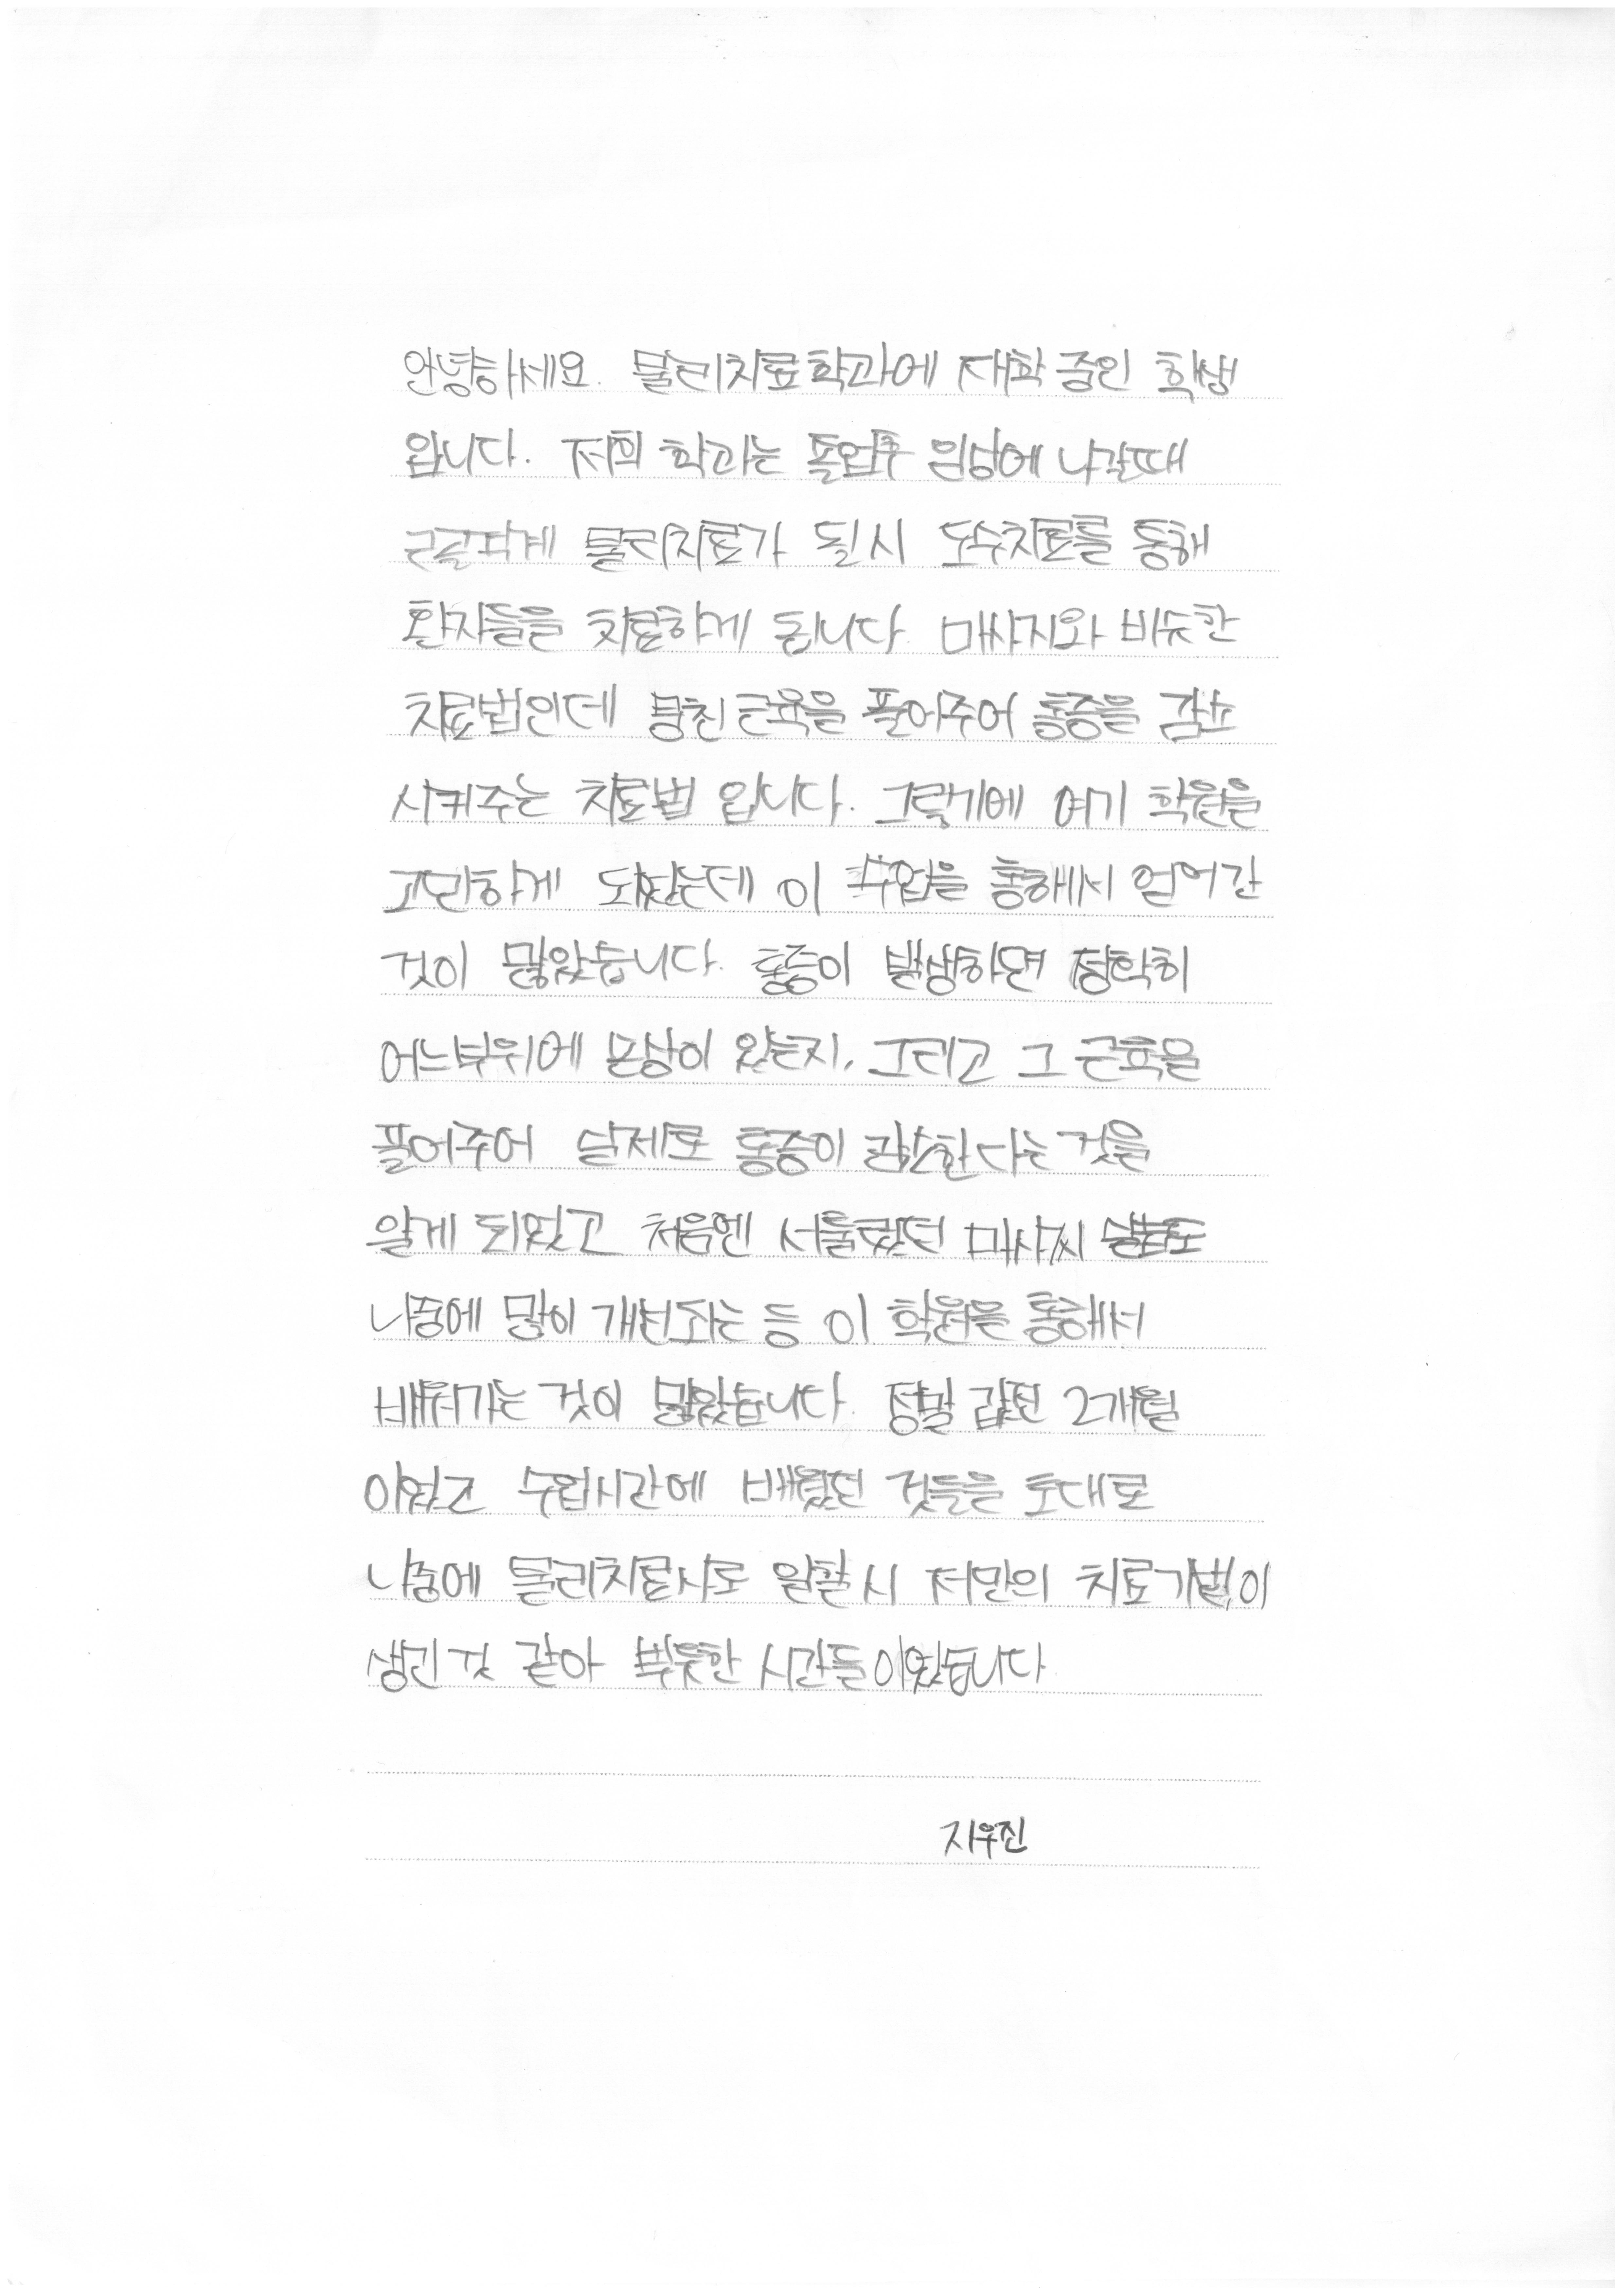 안녕하세요. 물리치료학과에 재학 중인 학생
입니다. 저희 학과는 졸업후 임상에 나갈때
근골격계 물리치료가 될시 도수치료를 통해
환자들을 치료하게 됩니다. 마사지와 비슷한
치료법인데 뭉친근육을 풀어주어 통증을 감소
시켜주는 치료법 입니다. 그렇기에 여기 학원을
고민하게 되었는데 이 수업을 통해서 얻어간
것이 많았습니다. 통증이 발생하면 정확히
어느부위에 손상이 있는지, 그리고 그 근육을
풀어주어 실제로 통증이 감소한다는 것을
알게 되었고 처음엔 서툴렀던 마사지
나중에 많이 개선되는 등 이 학원을 통해서
배워가는 것이 많았습니다. 정말 값진 2개월
이었고 수업시간에 배웠던 것들을 토대로
나중에 물리치료사로 일할 시 저만의 치료기법이
생긴 것 같아 뿌듯한 시간들이었습니다
지우진